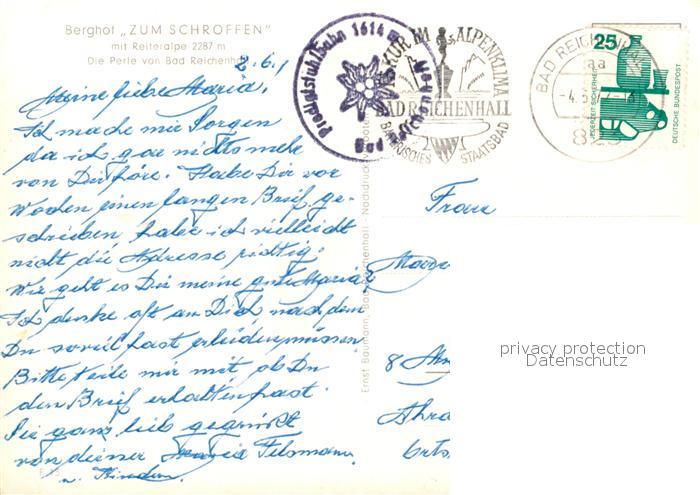 Berghof „ZUM SCHROFFEN"
mit Reiteralpe 2287 m
Die Perle von Bad Reichenh
2.6.
Meine liebe Maria,
Ich mache mir Sorgen
da ich gar nichts mehr
von Dir höre. Habe Dir vor
Wochen einen langen Brief ge-
schrieben habe ich vielleicht
nicht die Adresse richtig.
Wie geht es Dir meine gute Maria?
Ich denke oft an Dich nachdem
Du soviel hast erleiden müssen
Bitte teile mir mit ob Du
den Brief erhalten hast.
Sie ganz lieb gegrüßt
von deiner Felsmann
u. Kinder.
Predigtstuhlbahn 1614 m
Bad Reichenhall
KUR IM ALPENKLIMA
BAD REICHENHALL
BAYERISCHES STAATSBAD
BAD REICHENHALL
aa
-4.
25
JEDERZEIT SICHERHEIT
DEUTSCHE BUNDESPOST
Ernst Baumann, Bad Reichenhall - Nachdruck
Frau
8
privacy protection
Datenschutz